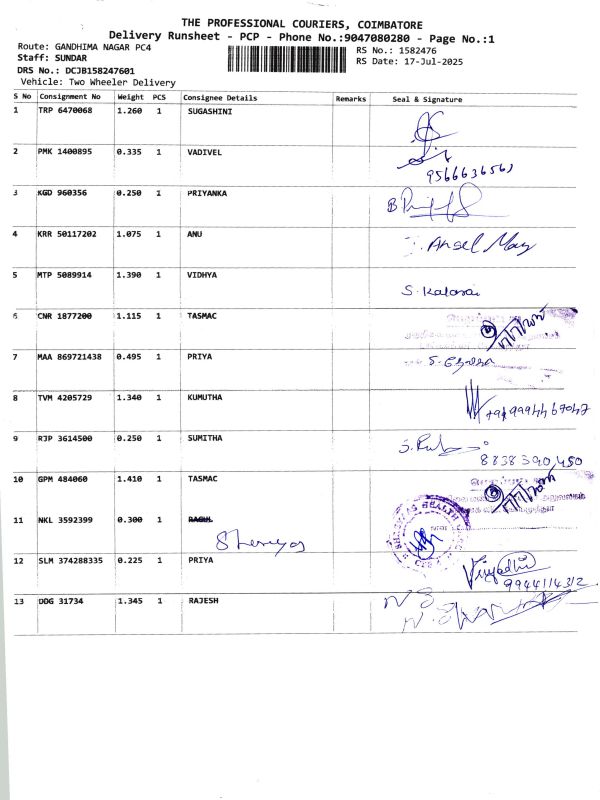 THE PROFESSIONAL COURIERS, COIMBATORE
Delivery Runsheet - PCP - Phone No.:9047080280 - Page No.:1
Route: GANDHIMA NAGAR PC4
RS No.: 1582476
Staff: SUNDAR
RS Date: 17-Jul-2025
DRS No.: DCJB158247601
Vehicle: Two Wheeler Delivery
S No Consignment No Weight PCS Consignee Details Remarks Seal & Signature
1 TRP 6470068 1.260 1 SUGASHINI
2 PMK 1400895 0.335 1 VADIVEL
3 KGD 960356 0.250 1 PRIYANKA
4 KRR 50117202 1.075 1 ANU Angel Mary
5 MTP 5089914 1.390 1 VIDHYA S. Kalarani
6 CNR 1877200 1.115 1 TASMAC
7 MAA 869721438 0.495 1 PRIYA
8 TVM 4205729 1.340 1 KUMUTHA
9 RJP 3614500 0.250 1 SUMITHA
8838390450
10 GPM 484060 1.410 1 TASMAC
11 NKL 3592399 0.300 1 RAGUL
HEALTH
12 SLM 374288335 0.225 1 PRIYA
9944114312
13 DDG 31734 1.345 1 RAJESH